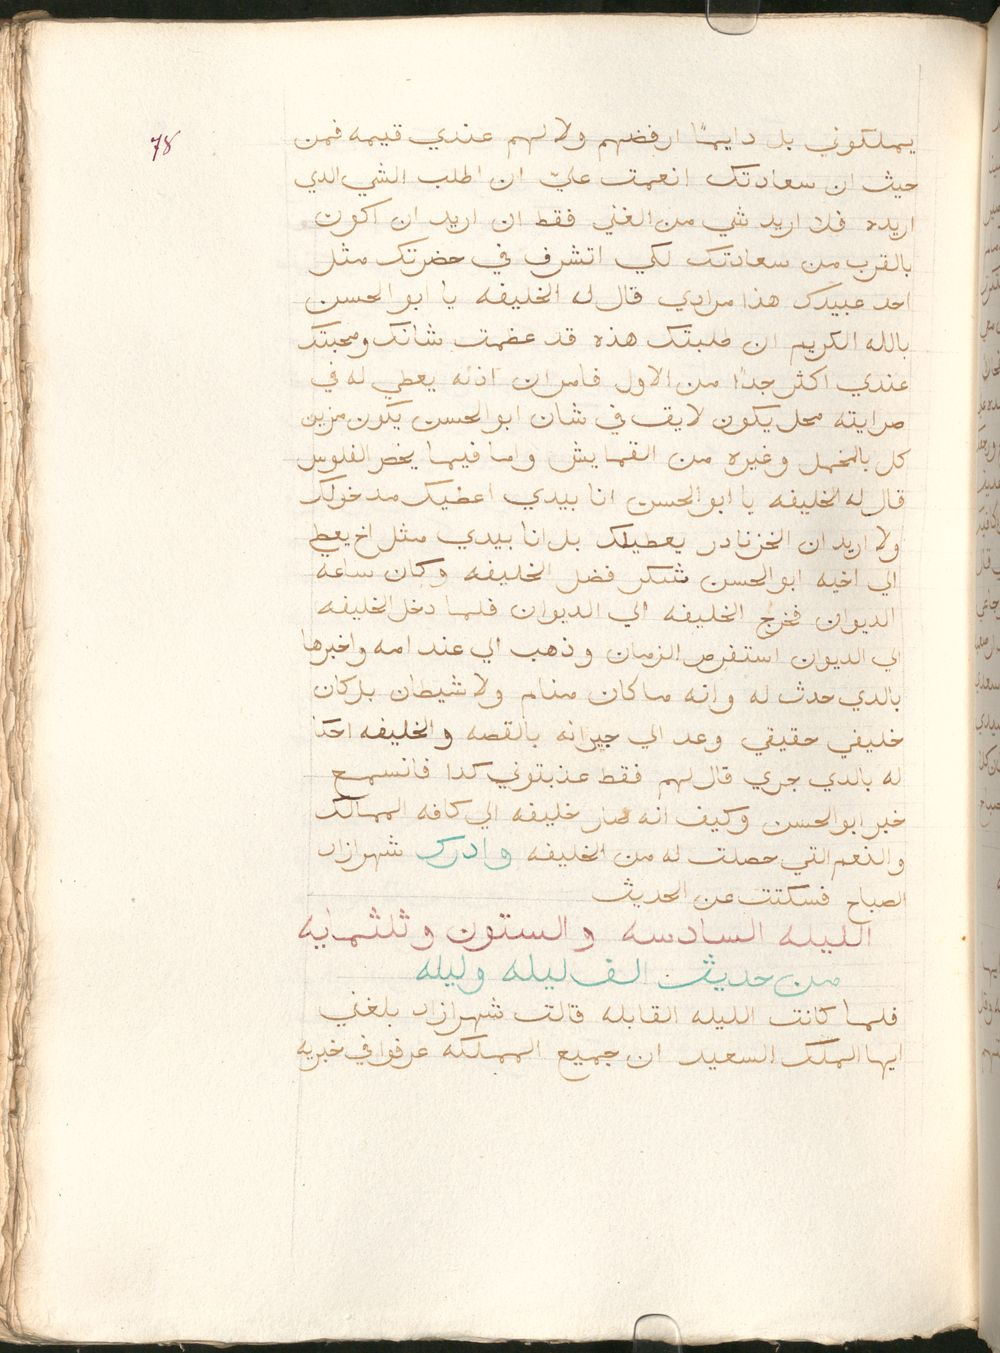 78
يملكوني بل دايمًا ارفضهم ولا لهم عندي قيمه فمن
حيث ان سعادتك انعمت عليّ ان اطلب الشي الدي
اريده فلا اريد شي من الغني فقط ان اريد ان اكون
بالقرب من سعادتك لكي اتشرف في حضرتك مثل
احد عبيدك هذا مرادي قال له الخليفه يا ابو الحسن
بالله الكريم ان طلبتك هذه قد عضمت شانك ومحبتك
عندي اكثر جدًا من الاول فامر ان اذنه يعطي له في
صرايته محل يكون لايق في شان ابو الحسن يكون مزين
كل بالمخمل وغيره من القمايش واما فيما يخص الفلوس
قال له الخليفه يا ابو الحسن انا بيدي اعضيك مدخولك
ولا اريد ان الخزنادر يعطيلك بل انا بيدي مثل اخ يعطي
الي اخيه ابو الحسن شكر فضل الخليفه وكان ساعه
الديوان فخرج الخليفه الي الديوان فلما دخل الخليفه
الي الديوان استفرص الزمان وذهب الي عند امه واخبرها
بالدي حدث له وانه ما كان منام ولا شيطان بل كان
خليفي حقيقي وعد الي جيرانه بالقصه والخليفه احكا
له بالدي جري قال لهم فقط عذبتوني كدا فانسمع
خبر ابو الحسن وكيف انه صار خليفه الي كافه الممالك
والنعم التي حصلت له من الخليفه وادرك شهرازاد
الصباح فسكتت عن الحديث
الليله السادسه والستون وثلثمايه
من حديث الف ليله وليله
فلما كانت الليله القابله قالت شهرازاد بلغني
ايها الملك السعيد ان جميع المملكه عرفوا في خبريه